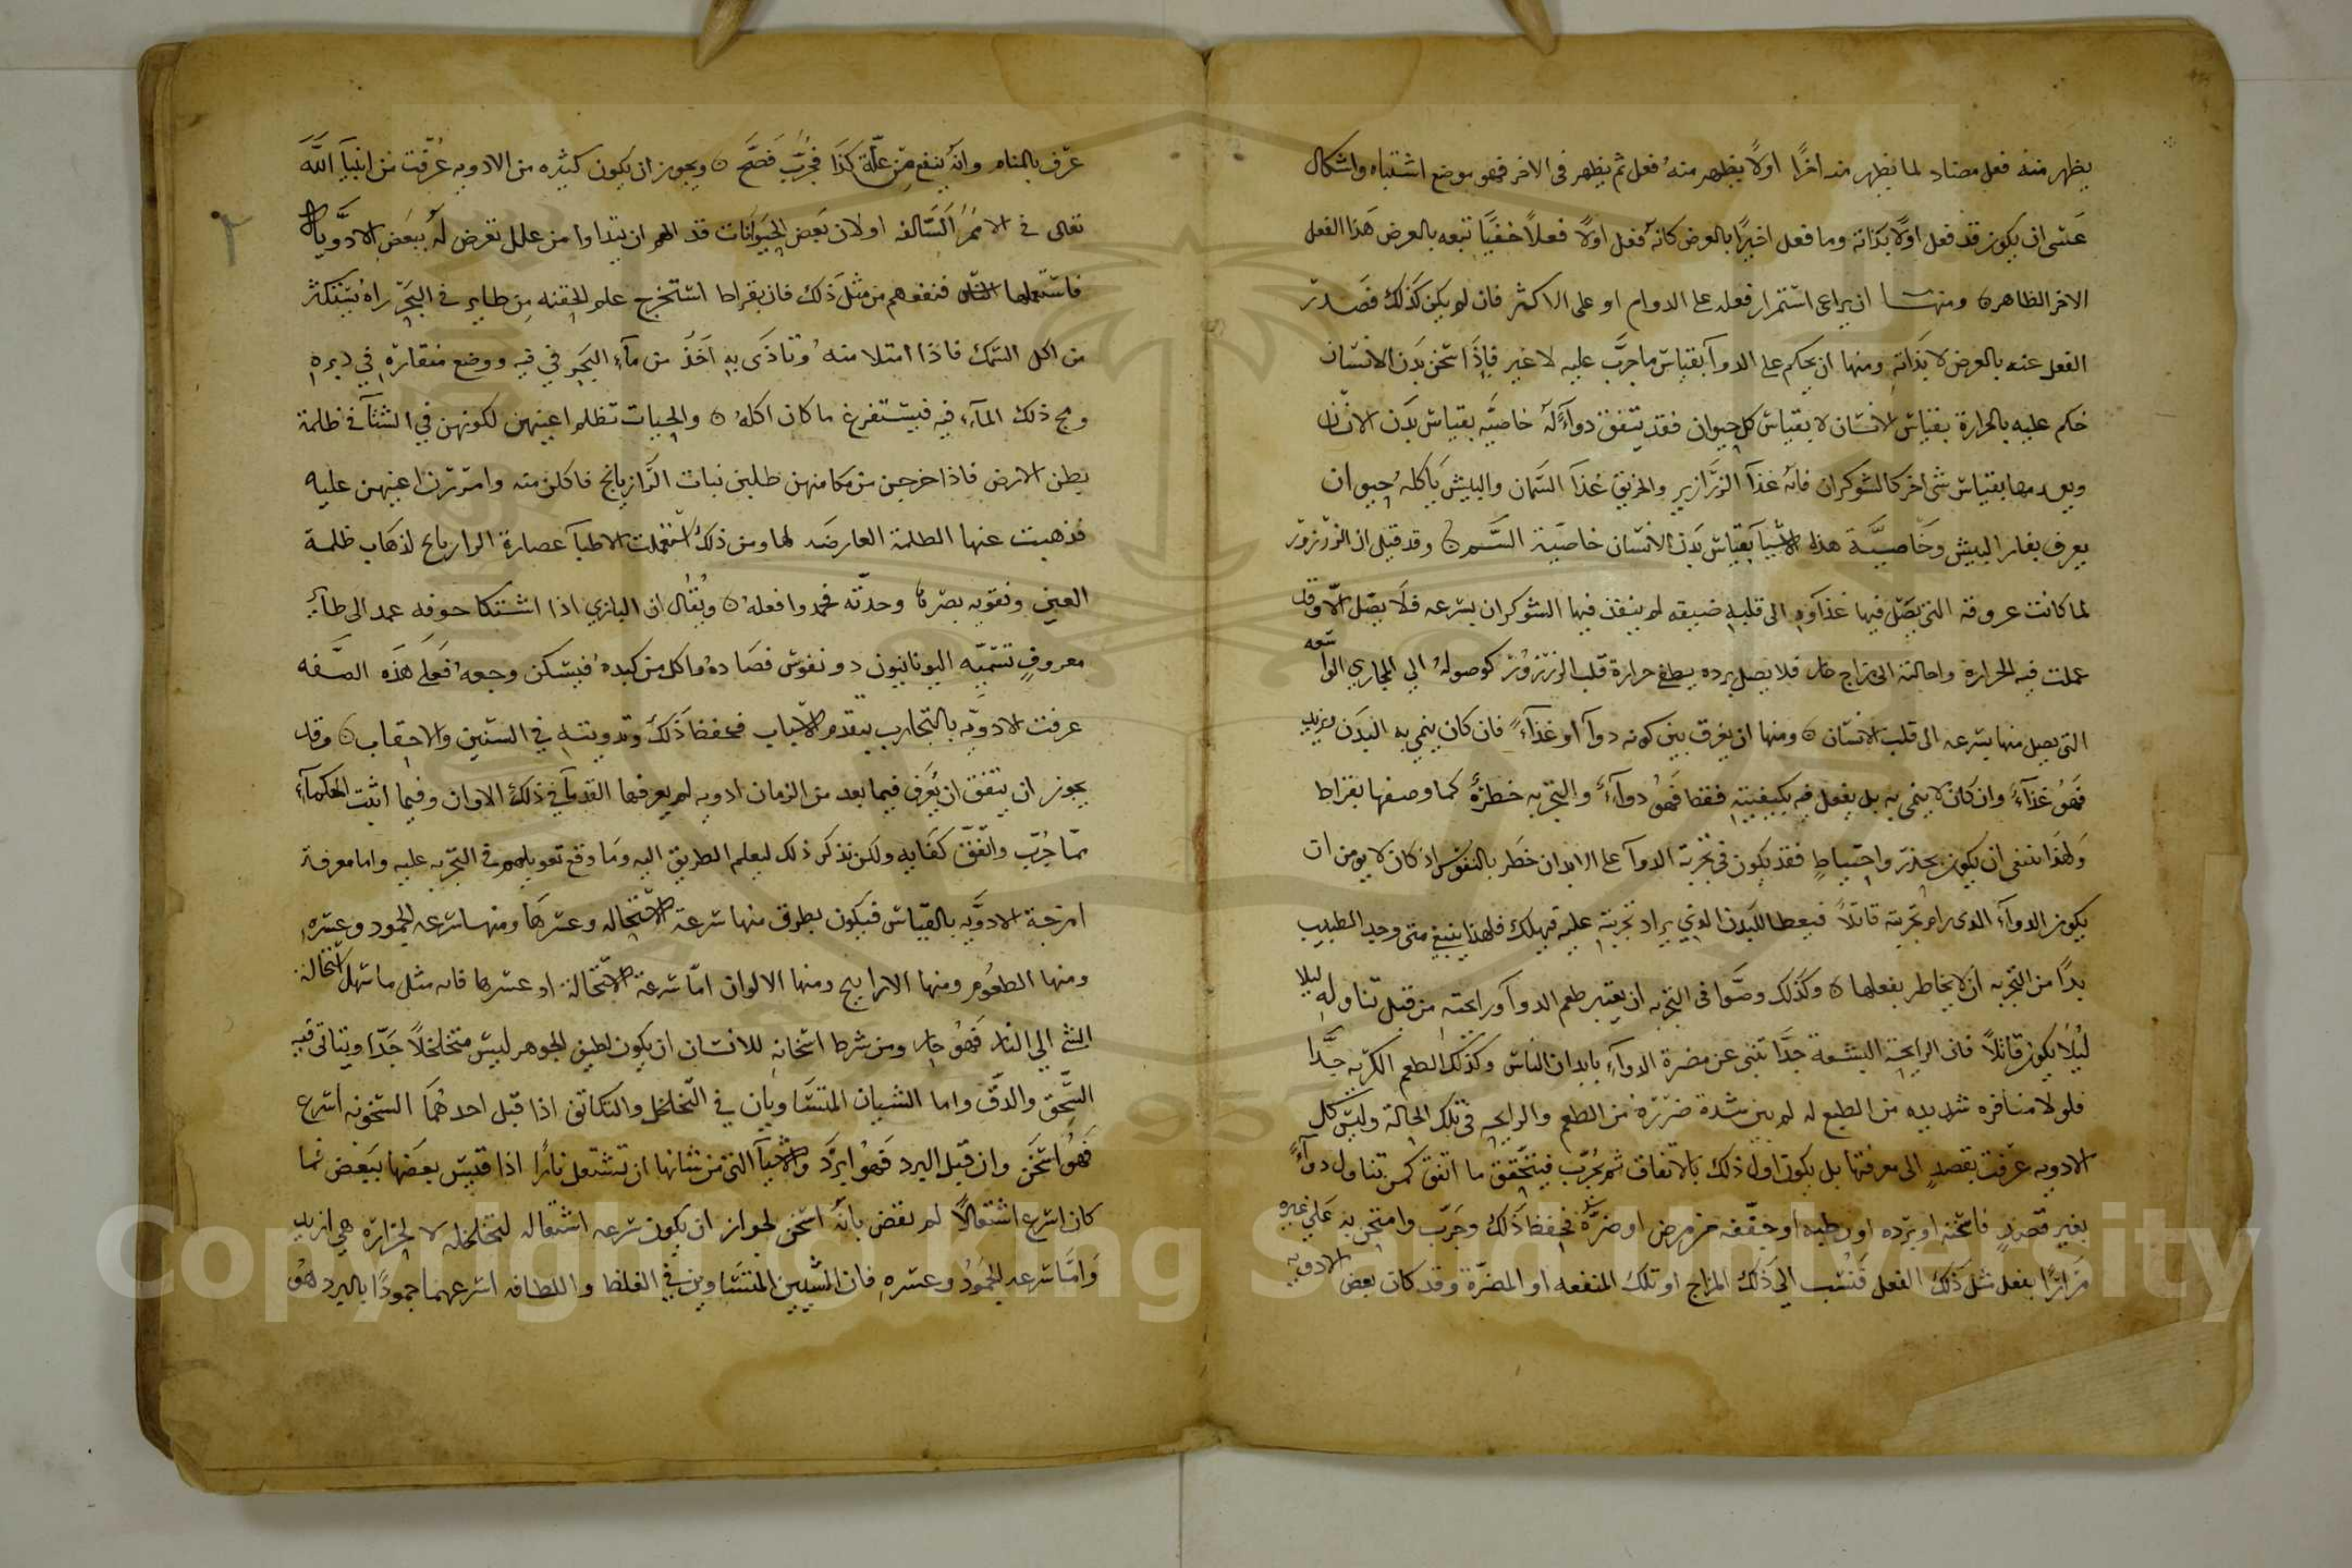 يظهر منه فعل مضاد لما يظهر منه اخرًا اولًا يظهر منه فعل ثم يظهر فى الاخر فهو موضع اشتباه واشكال
عَسَى ان يكون قد فعل اولًا بذاته وما فعل اخيرًا بالعرض كانه فعل اولًا فعلًا خفيًا تتبعه بالعرض هَذا الفعل
الاخر الظاهر ومنها ان يراعى استمرار فعله على الدوام او على الاكثر فان لم يكن كذلك فصدر
الفعل عنه بالعرض لا بذاته ومنها ان يحكم على الدوآ بقياس ما جرّب عليه لا غير فاذا اسخن بَدَن الانسان
حكم عليه بالحرارة بقياس الانسان لا بقياس كل حيوان فقد يتفق دوآءً لهُ خاصيّه بقياس بدن الانسان
بقياس شى اخر كالشوكران فانه غذآ الزرازير والخربق غذآ السمان والبيش يَاكلهُ حيوان
يعرف بفار البيش وخاصيّة هذه الاشيآ بقياس بَدَن الانسان خاصّية السَّم وقد قيل ان الزرزور
لما كانت عروقه التى يصل فيها غذاوه الى قلبه ضيقه لم ينفذ فيها الشوكران بسرعه فلا يصل الا وقد
عملت فيه الحرارة واحالته الى مزاج حار فلا يصل برده يطفى حرارة قلب الزرزور كوصولهُ الي المجاري الواسعه
التى يصل منها بسرعه الى قلب الانسان ومنها ان يفرق بين كونه دوآ او غذآءً فان كان ينمي به البَدن ويزيد
فَهوُ غذآءً وان كان لا ينمى به بل يفعل فيه بكيفيته فقط فَهوُ دوآءً والتجربه خطرةُ كما وصفها بقراط
وَلهذا ينبغى ان يكون بحذر واحتياطٍ فقد يكون فى تجربة الدوآ على الابدان خطر بالنفوس اذ كان لا يومن ان
يكون الدوآءِ الذى رام تجربته قاتلًا فيعطا للبدن الذي يراد تجربته عليه فيهلك فلهذا ينبغي متى وجد الطبيب
بدًا من التجربه ان لا يخاطر بفعلها وكذلك وصّوا فى التجربه ان يعتبر طعم الدوآ ورايحته من قبل تناوله ليلا
ليُلا يكون قاتلًا فان الرايحة البشعة جدًا تنبى عن مضرة الدوآءِ بابدان الناس وكذلك الطعم الكريه جدًا
فلولا منافره شديده من الطبع له لم يبن شدة ضررهُ من الطعم والرايحه فى تلك الحالة وليس كل
الادويه عرفت بقصدٍ الى معرفتها بل يكون اول ذلك بالاتفاق ثم يُجرّب فيتحقق ما اتفق كمن تناول دوآءً
بغير قصدٍ فاسخنه او برّده او رطبه او جفّفه من مرض او ضرّهُ فحفظ ذَلك وجَرّب وامتحن به عَلي غيره
مرَارًا بفعل مثل ذلك الفعل فنُسب الي ذَلك المزاج او تلك المنفعه او المضرّة وقد كان بعض الادويه
عرّف بالمنام وانهُ ينفع مِن علّة كذا فجُرّب فَصَحّ ويجوز ان يكون كثيره من الادويه عُرّفت من انبيآ اللّه
تعالى فى الامم السّالفه اولان بَعض الحيَوانات قد الهم ان يتداوا من علل تعرض لهُ ببَعض الادويّه
فاستعملها الناس فنفعهم من مثل ذلك فان بقراط استخرج علم الحقنه مِن طاير فى البحَر راهُ يستكثر
من اكل السّمك فاذا امتلا منهُ وتاذى بهِ اخَذُ من مآءِ البحَر في فيه ووضع منقارهِ في دبرهِ
ومج ذلك المآءِ فيه فيستفرغ ما كان اكلهُ والحيات تظلم اعينهن لكونهن في الشتآ فى ظلمة
بطن الارض فاذا خرجن من مكامنهن طلبن نبات الرّازيانج فاكلن منه وامررن اعينهن عليه
فذهبت عنها الظلمة العارضَه لها ومن ذلك استعملت الاطبآ عصارة الرازيانج لذهَاب ظلمة
العين وتقويه بصَرها وحدّته فحمدوا فعلهُ ويُقال ان البازي اذا اشتكا جوفه عمد الى طآئر
معروفٍ تسّميّه اليونانيون دونفوس فصَادهُ واكل من كبدهُ فيسكن وجعهُ فَعَلى هَذه الصَّفه
عرفت الادويّه بالتجارب بتقدم الاسباب فحفظ ذَلك وتدوينه في السّنين والاحقاب وقد
يجوز ان يتفق ان يُعرَف فيما بعد من الزمان ادويه لم يعرفها القدمآ في ذلك الاوان وفيما اثبت الحكمآءِ
ممّا جُرّب واتّفق كفَايه ولكن نذكر ذلك ليعلم الطريق اليه ومَا وقع تعويلهم فى التجربه عليه واما معرفة
امزجة الادويّه بالقيّاس فيكون بطرق منها سرعة الاستحاله وعسرهَا ومنها سرعه الجمود وعسرهِ
ومنها الطعُوم ومنها الارايح ومنها الالوان امّا سرعة الاستحالة او عسرها فانه مثل ما سهل استحالة
الشئ الي النار فَهوُ حار ومن شرط اسخانهِ للانسان ان يكون لطيف الجوهر ليسَ متخلخلًا جدّا ويتاتى فيه
السّحق والدّقّ واما الشيان المتسَاويان في التّخلخل والتكاثف اذا قبل احدهُمَا السّخونه اسرع
فَهوُ اسخَن وان قبل البرد فَهوُ ابرَد والاشيآ التى من شانها ان تشتعل نارًا اذا قيسَ بعضَها ببَعض فما
كان اسرع اشتعالًا لم يقض بانهُ اسخن لجواز ان يكون سرعه اشتعاله لتخلخله لا لحرارة هي ازيد
وَامّا سرعه الجمَودُ وعسرهِ فان الشّيين المتسَاوين في الغلظ واللطافه اسرعهما جمودًا بالبرد هوُ
Copyright © King Saud University